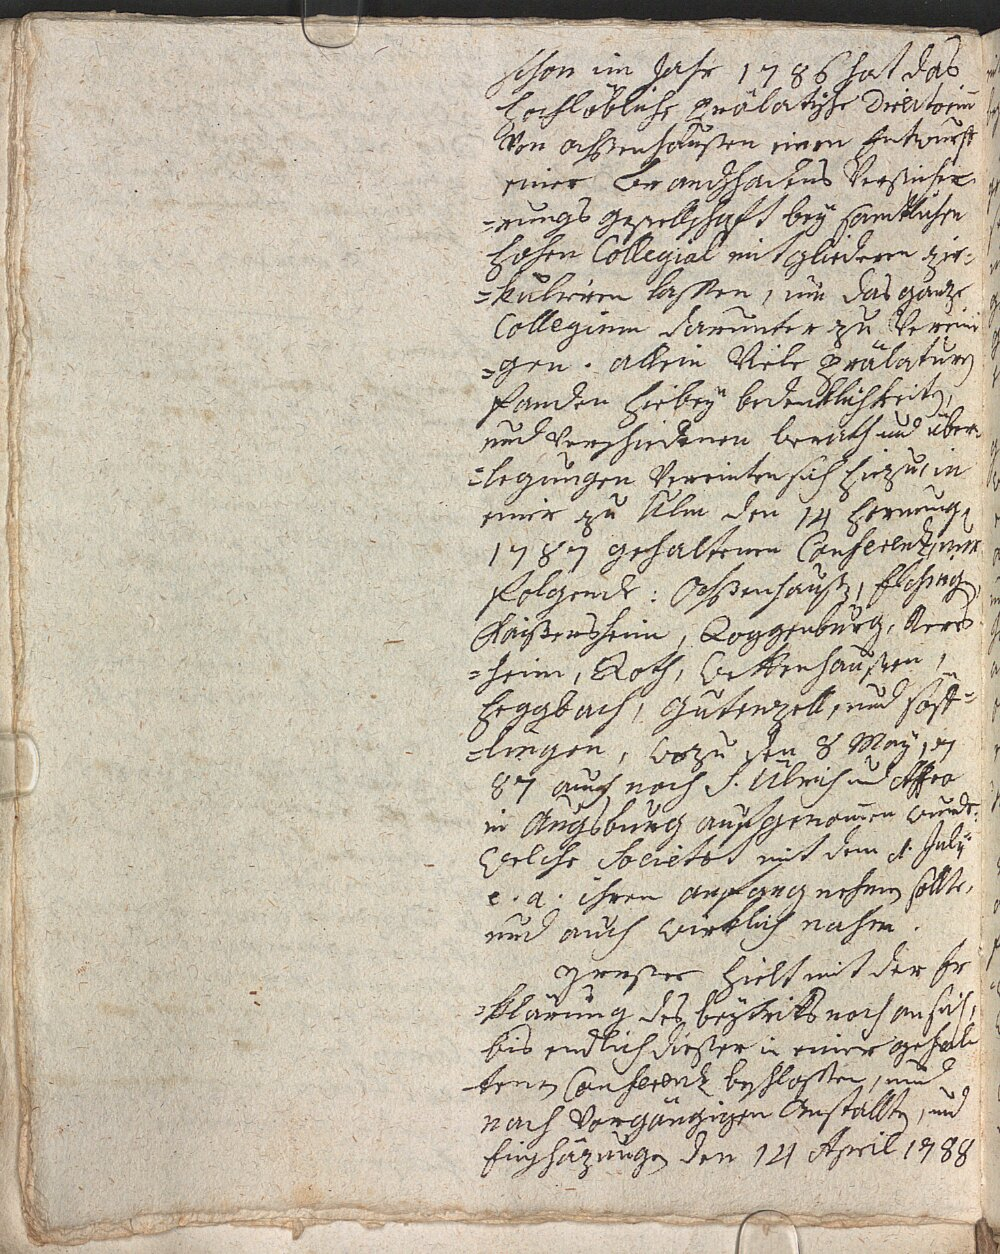 Schon im Jahr 1786 hat das
hochlöbliche Prälatische Directorium
Von ochßenhaußen einen Entwurff
einer Brandschadens Versicher
=rungs gesellschaft bey samtlichen
hohen Collegial mitgliedern zir=
=kuliren lassen, um das ganze
Collegium darunter zu Verein
=gen. allein Viele Prälaturen
fanden hiebey bedencklichkeiten,
und verschiedenen berath und über
=legungen Vereinten sich hiezu, in
einer zu Ulm den 14 Hornung
1787 gehaltenen Conferenz, nur
folgende: Ochßenhauß, Elching
Kaißersheim, Roggenburg, Neres
=heim, Roth, Wettenhaußen,
Heggbach, Gutenzell, und Söff=
=lingen, wozu den 8 May,
87 auch noch S. Ulrich und Affra
in Augsburg aufgenomen wurde:
Welche Societät mit dem 1. July
e. a. ihren anfang nehmen sollte,
und auch wirklich nahm.
hielt mit der Er
=klärung des beytritts noch an sich,
bis endlich dießer in einer gehal
tenen Conferenz beschlossen, und
nach Vorgängigen Anstallten, und
Einschäzungen den 14 April 1788